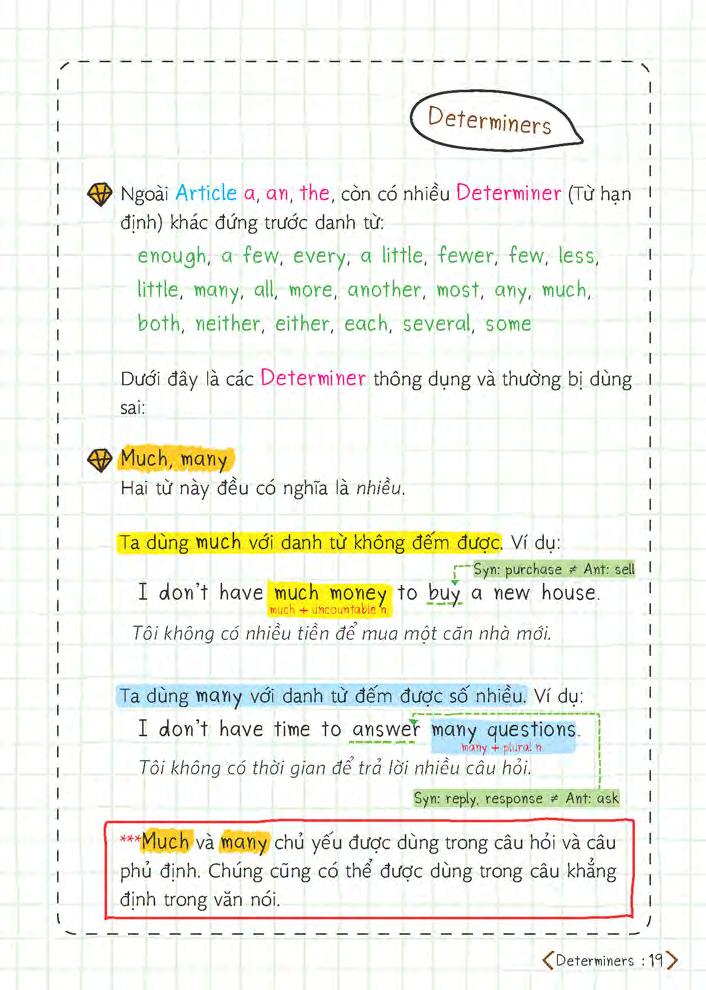 Determiners
Ngoài Article a, an, the, còn có nhiều Determiner (Từ hạn
định) khác đứng trước danh từ:
enough, a few, every, a little, fewer, few, less,
little, many, all, more, another, most, any, much,
both, neither, either, each, several, some
Dưới đây là các Determiner thông dụng và thường bị dùng
sai:
Much, many
Hai từ này đều có nghĩa là nhiều.
Ta dùng much với danh từ không đếm được. Ví dụ:
Syn: purchase ≠ Ant: sell
I don't have much money to buy a new house.
much + uncountable n.
Tôi không có nhiều tiền để mua một căn nhà mới.
Ta dùng many với danh từ đếm được số nhiều. Ví dụ:
I don't have time to answer many questions.
many + plural n.
Tôi không có thời gian để trả lời nhiều câu hỏi.
Syn: reply, response ≠ Ant: ask
***Much và many chủ yếu được dùng trong câu hỏi và câu
phủ định. Chúng cũng có thể được dùng trong câu khẳng
định trong văn nói.
Determiners : 19